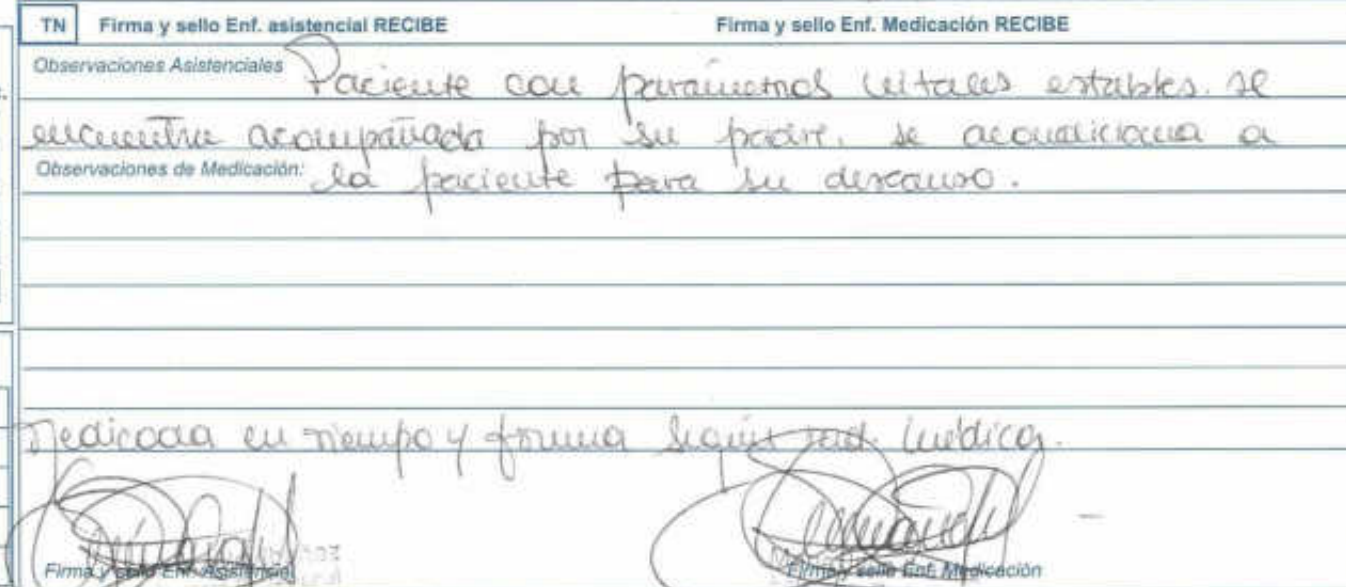 TN Firma y sello Enf. asistencial RECIBE Firma y sello Enf. Medicación RECIBE
Observaciones Asistenciales Paciente con parámetros vitales estables. se
encuentra acompañada por su padre, se acondiciona a
Observaciones de Medicación: la paciente para su descanso.
Medicada en tiempo y forma según ind. médica.
Firma y sello Enf. Asistencial Firma y sello Enf. Medicación